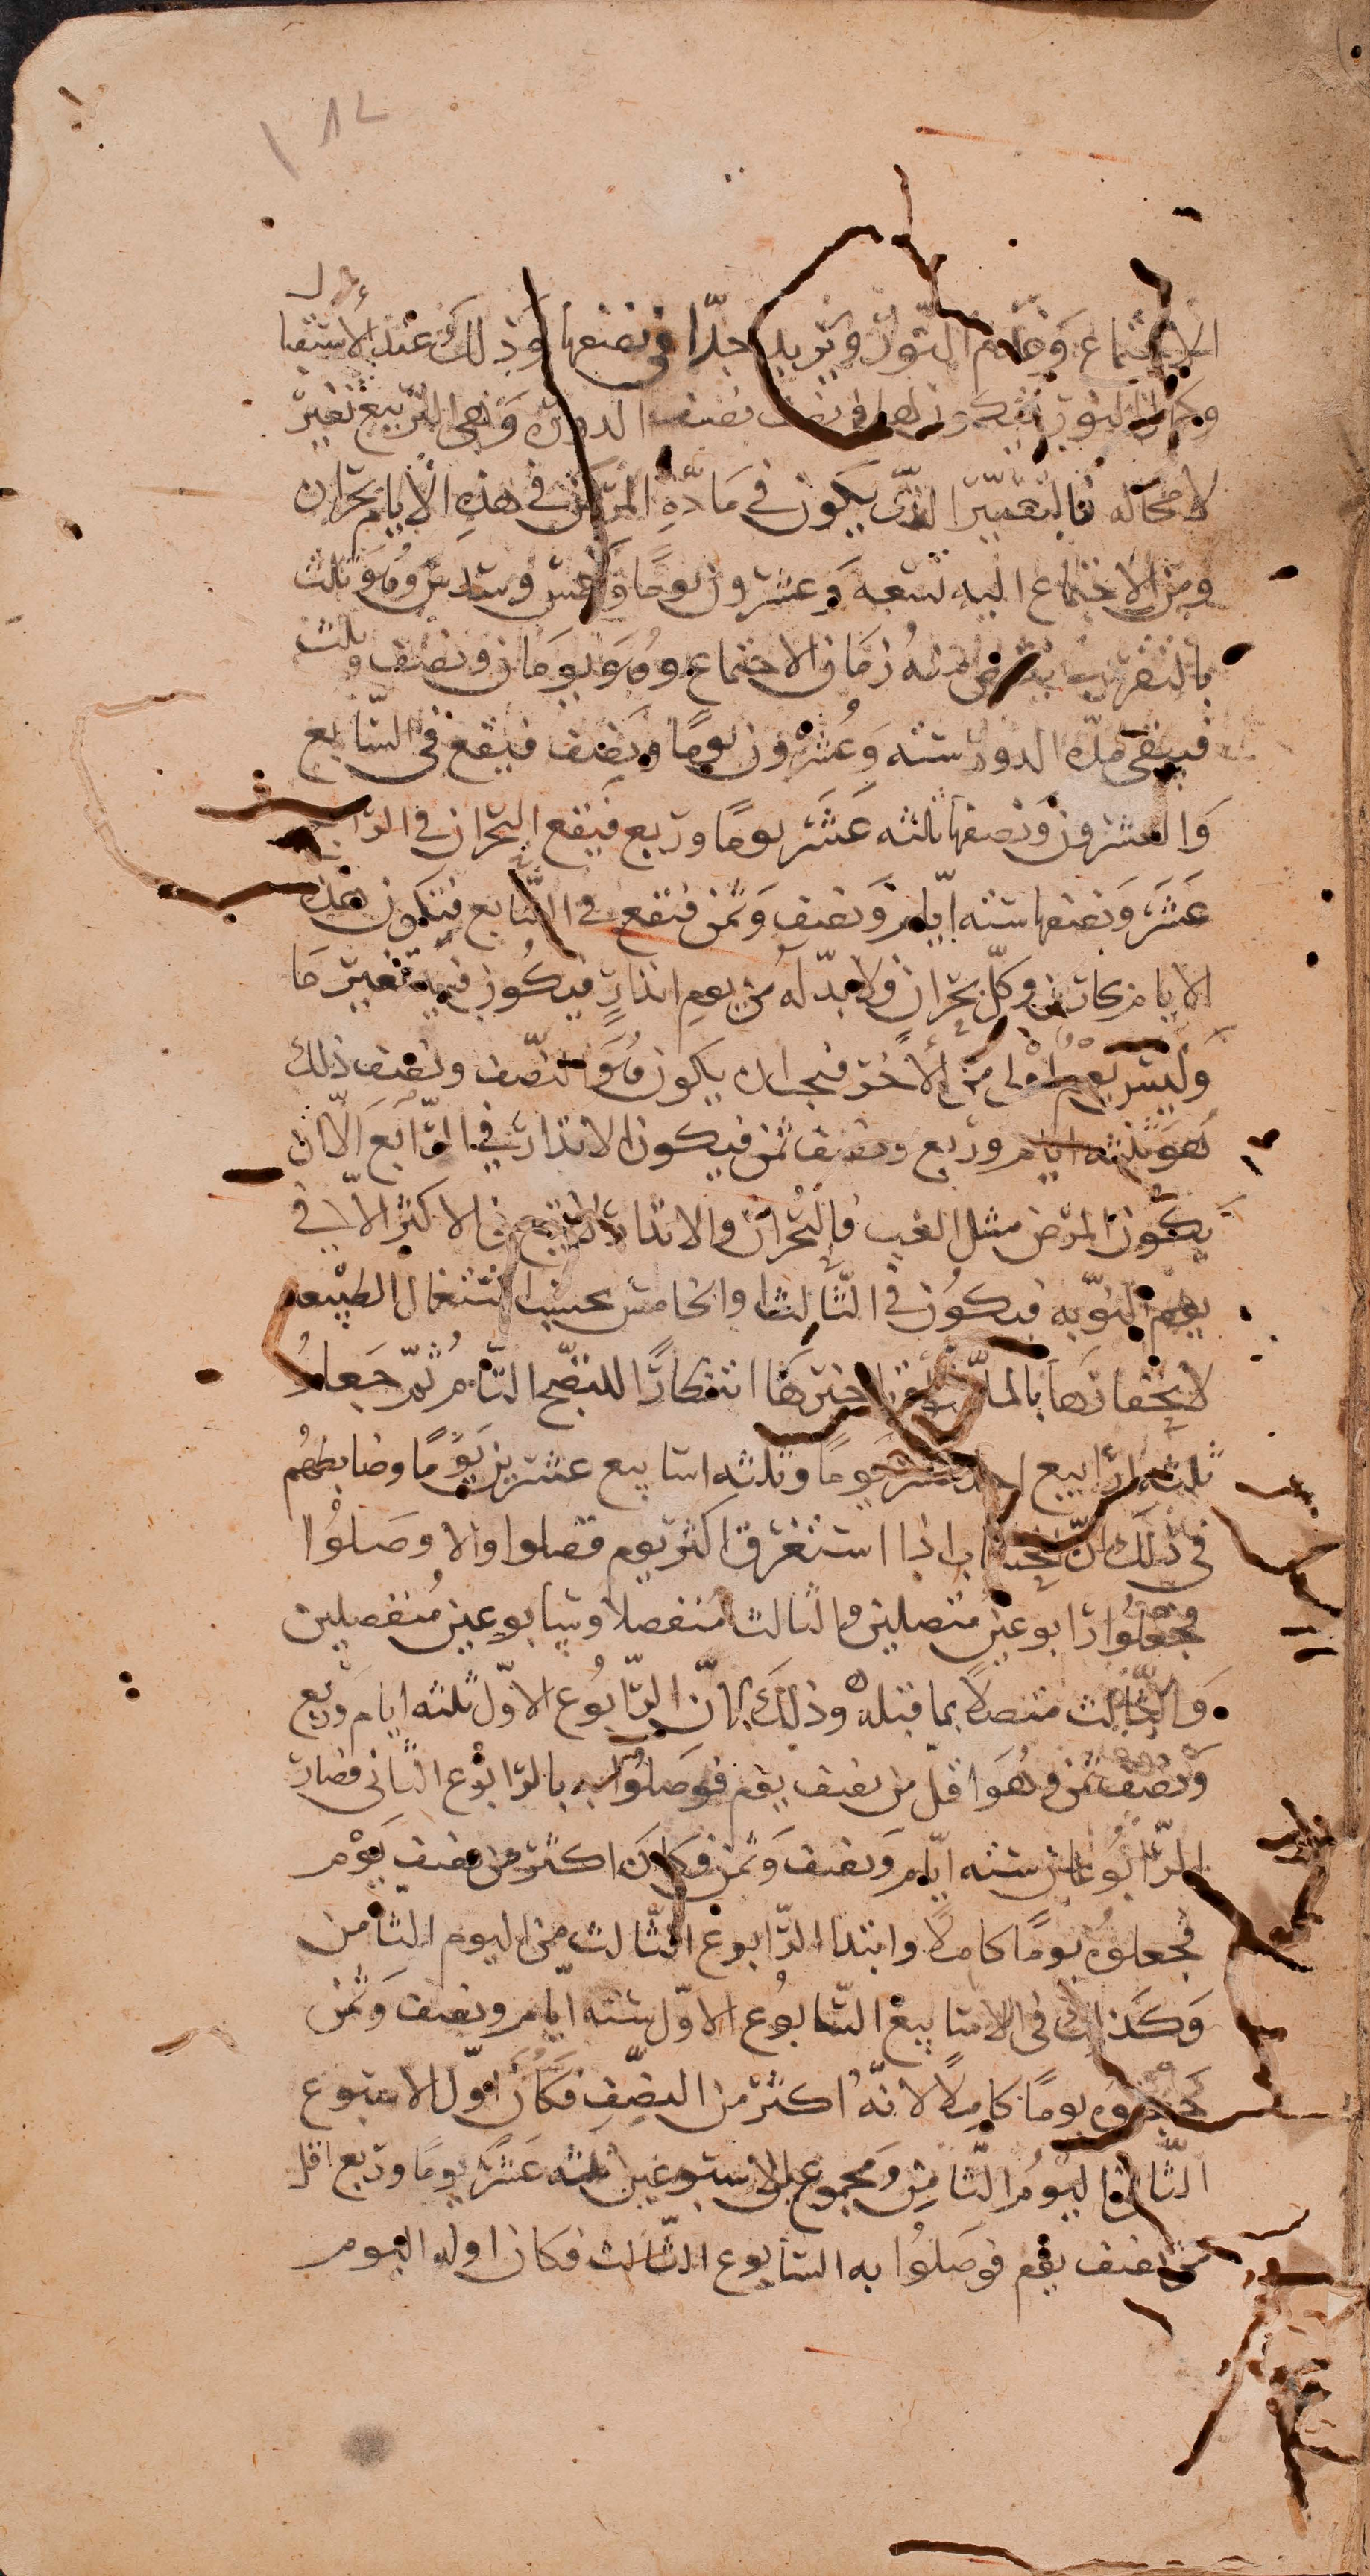 ١٨٢
الاجتماع وعدم النور وتزيد جدّا في نصفها وذلك عند الاستقبال
وكمال النور فيكون لها في نصف نصف الدورة وهي التربيع تغير
لا محاله فالتغيّر الذي يكون في مادّة المرض في هذه الأيام بحران
ومن الاجتماع اليه تسعه وعشرون يومًا وخمس وسدس وهو ثلث
بالتقريب ينقص منه زمان الاجتماع وهو يومان ونصف وثلث
فيبقى مدّه الدور سته وعشرون يومًا ونصف فيقع في السّابع
والعشرون ونصفها ثلثه عشر يومًا وربع فيقع البحران في الرابع
عشر ونصفها سته ايّام ونصف وثمن فيقع في السّابع فيكون هذه
الايام بحارين وكلّ بحران ولا بدّ له من يوم انذار فيكون فيه تغيير ما
وليس يوم اولى من الآخر فيجب ان يكون هو النصف ونصف ذلك
هو ثلثه ايام وربع ونصف ثمن فيكون الانذار في الرّابع الّا ان
يكون المرض مثل الغب فالبحران والانذار لا يقع في الاكثر الّا في
يوم النوبه فيكون في الثّالث او الخامس بحسب اشتغال الطبيعه
لانحفازها بالمادّة او تاخيرها انتظارًا للنضج التام ثمّ جعلوا
ثلثه ارابيع احد عشر يومًا وثلثه اسابيع عشرين يومًا وضابطهم
في ذلك انّ الحساب اذا استغرق اكثر يوم فصلوا والا وصلوا
فجعلوا رابوعين متصلين والثالث منفصلا وسابوعين منفصلين
والثالث متصلًا بما قبله وذلك لانّ الرّابوع الاوّل ثلثه ايام وربع
ونصف ثمن وهو اقلّ من نصف يوم فوصلوا به بالرابوع الثاني فصار
الرّابوعان سته ايّام ونصف وثمن فكان اكثر من نصف يوم
فجعلوه يومًا كاملًا وابتدا الرّابوع الثّالث من اليوم الثامن
وكذلك في الاسابيع السّابوع الاوّل سته ايّام ونصف وثمن
فجبروه يومًا كاملًا لانّه اكثر من النصف فكان اوّل الاسبوع
الثاني اليوم الثامن ومجموع الاسبوعين ثلثه عشر يومًا وربع اقل
من نصف يوم فوصلوا به السابوع الثالث فكان اوله اليوم